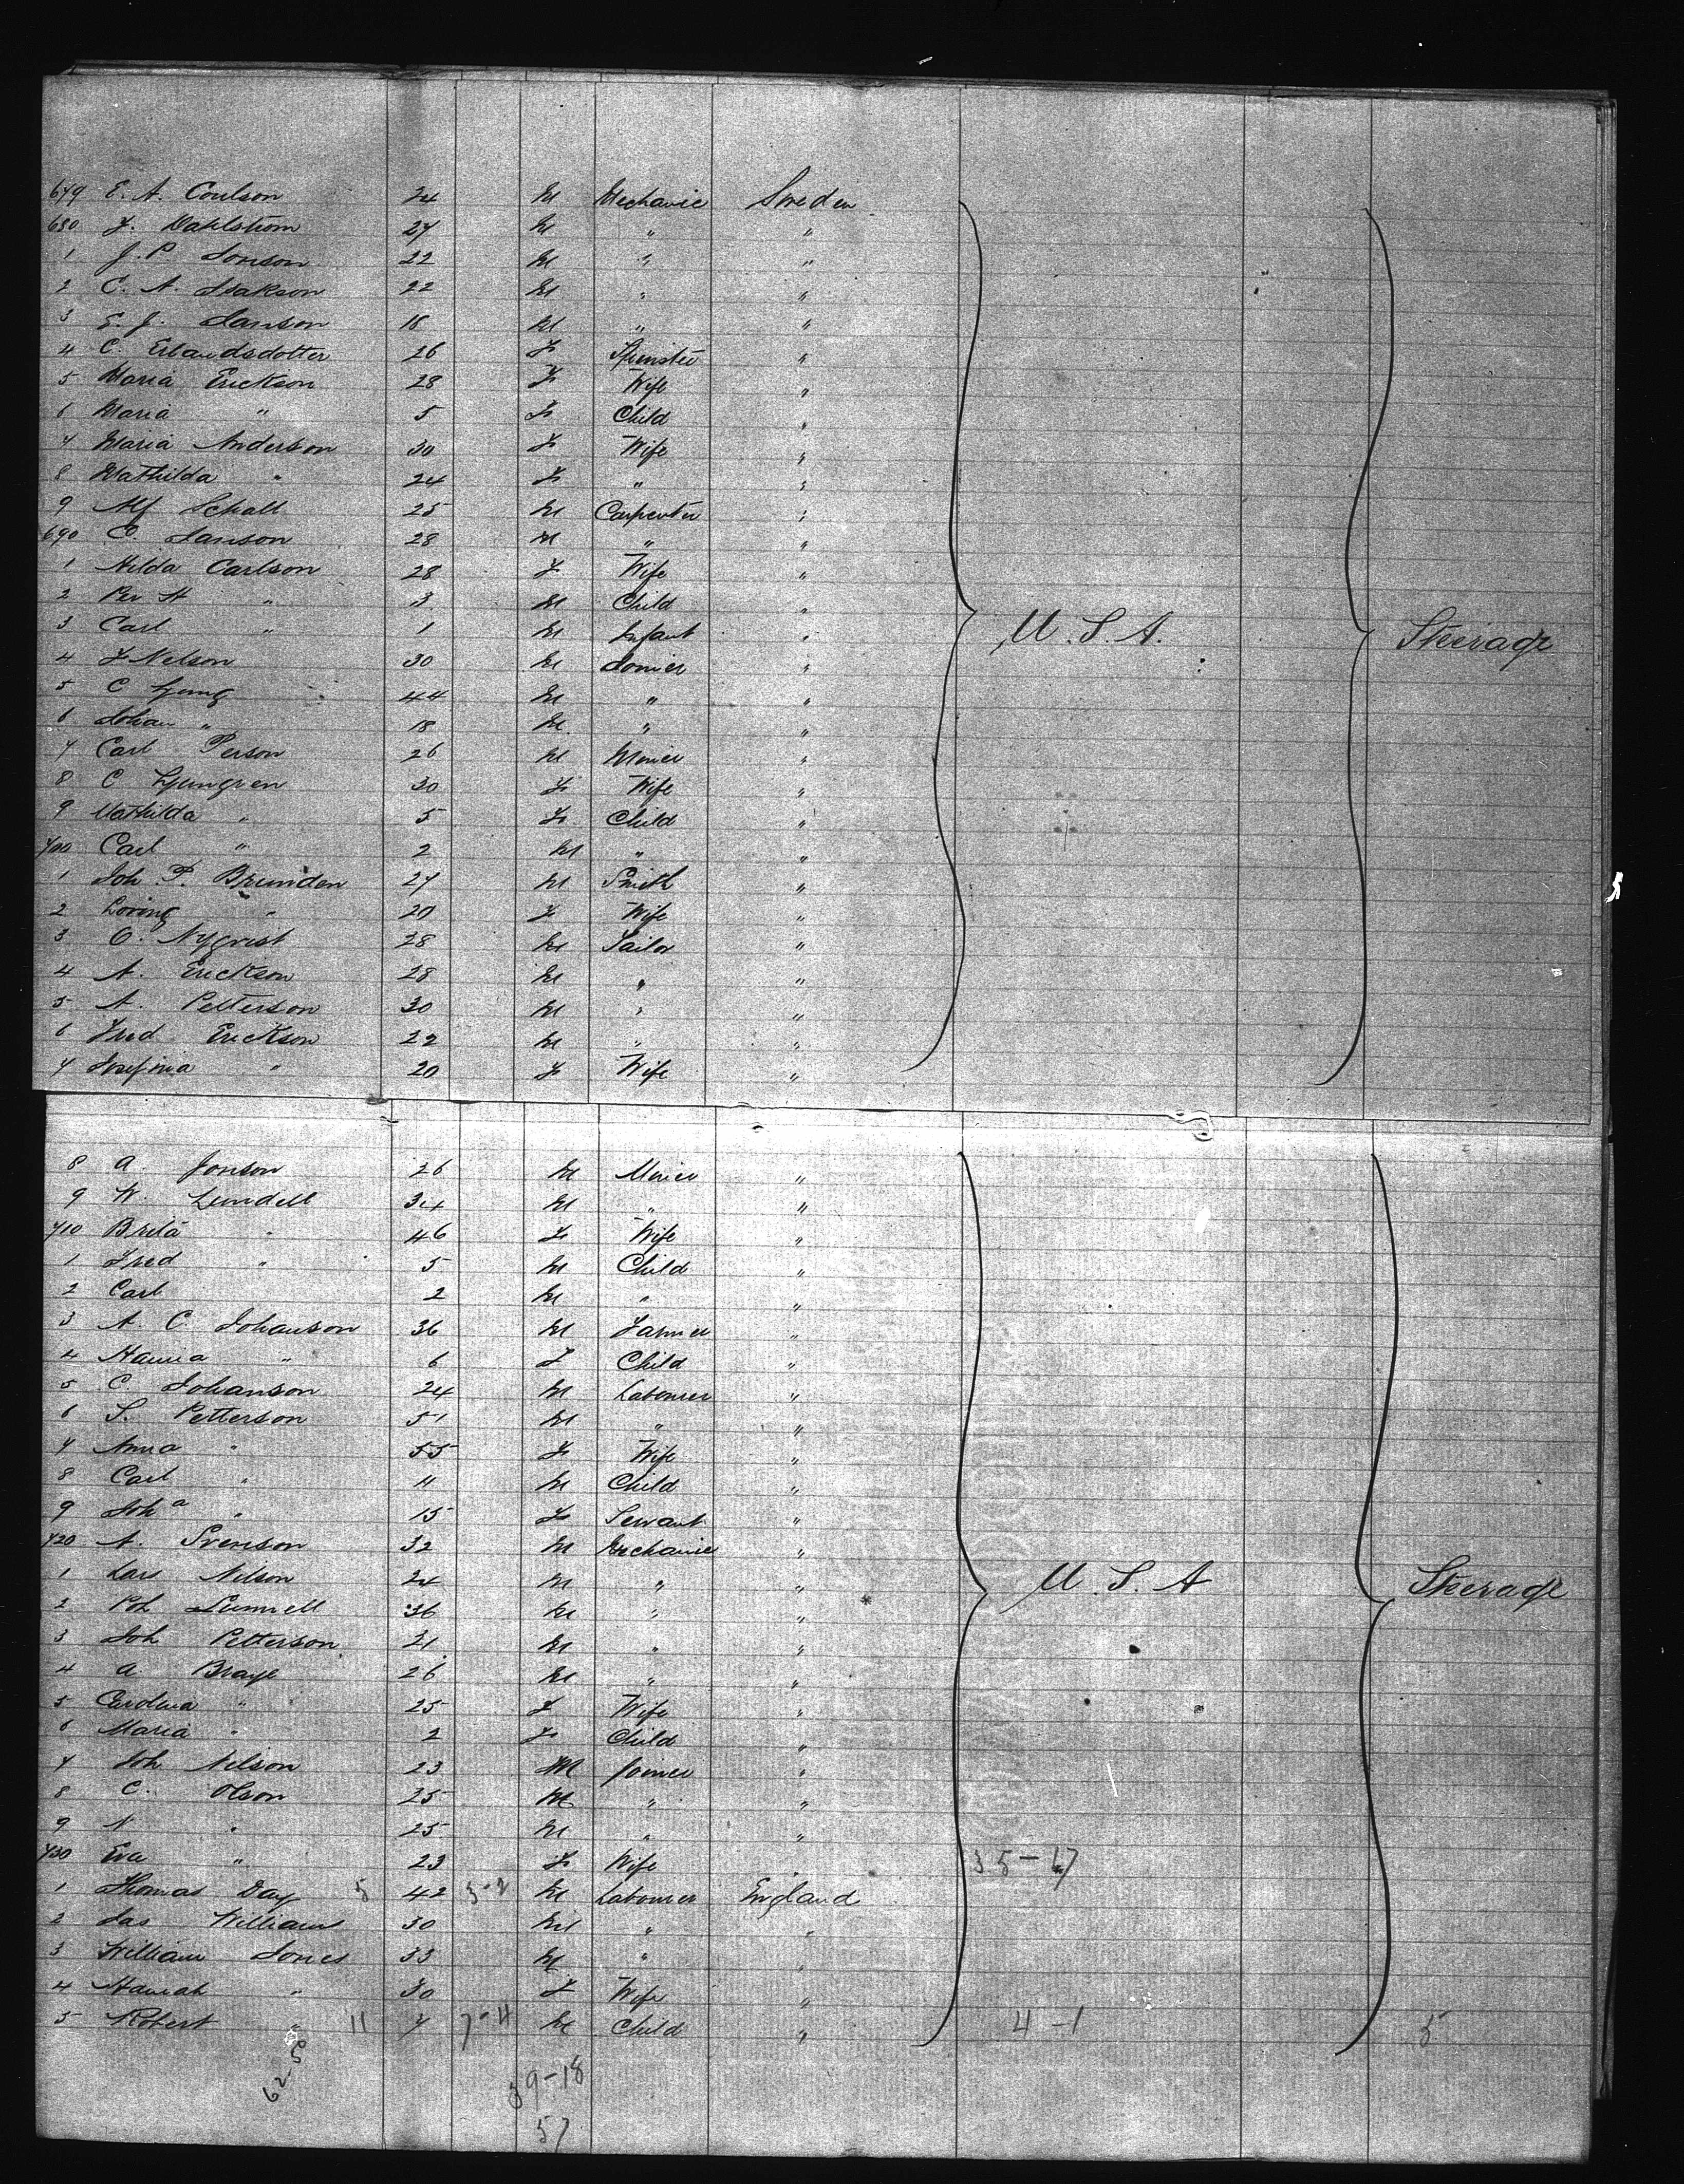 679 E. A. Coulson 24 M Mechanic Sweden
680 J. Dahlstrom 27 M " "
1 J. P. Jonson 22 M " "
2 C. A. Isakson 22 M " "
3 E. J. Janson 18 M " "
4 C. Erlandsdotter 26 F Spinster "
5 Maria Erickson 28 F Wife "
6 Maria " 5 F Child "
7 Maria Anderson 30 F Wife "
8 Mathilda " 24 F " "
9 Alf Schall 25 M Carpenter "
690 C. Janson 28 M " "
1 Hilda Carlson 28 F Wife "
2 Per H " 3 M Child "
3 Carl " 1 M Infant " U.S.A. Steerage
4 F Nelson 30 M Joiner "
5 C 44 M " "
6 Johan " 18 M " "
7 Carl Person 26 M Miner "
8 C Ljungren 30 F Wife "
9 Mathilda " 5 F Child "
700 Carl " 2 M " "
1 Joh. P. Brunden 27 M Smith "
2 " 20 F Wife "
3 O. Nyqvist 28 M Tailor "
4 A. Erickson 28 M " "
5 A. Petterson 30 M " "
6 Fred Erickson 22 M " "
7 Josefina " 20 F Wife "
8 A. Jonson 26 M Miner "
9 W. Lundell 34 M " "
710 Brita " 46 F Wife "
1 Fred " 5 M Child "
2 Carl 2 M " "
3 A. C. Johanson 36 M Farmer "
4 Hanna " 6 F Child "
5 C. Johanson 24 M Labourer "
6 S. Petterson 51 M " "
7 Anna " 55 F Wife "
8 Carl " 11 M Child "
9 Joha " 15 F Servant "
720 A. Svenson 32 M Mechanic "
1 Lars Nilson 24 M " " U.S.A Steerage
2 36 M " "
3 Joh Petterson 21 M " "
4 A. Brage 26 M " "
5 Carolina " 25 F Wife "
6 Maria " 2 F Child "
7 Joh Nilson 23 M Joiner "
8 C. Olson 25 M " "
9 N " 25 M " "
730 Eva " 23 F Wife " 35-17
1 Thomas Day 5 42 5-2 M Labourer England
2 Jas Williams 30 M " "
3 William Jones 33 M " "
4 Hannah " 30 F Wife "
5 Robert " 11 7 7-4 M Child " 4-1 5
62-5
39-18
57